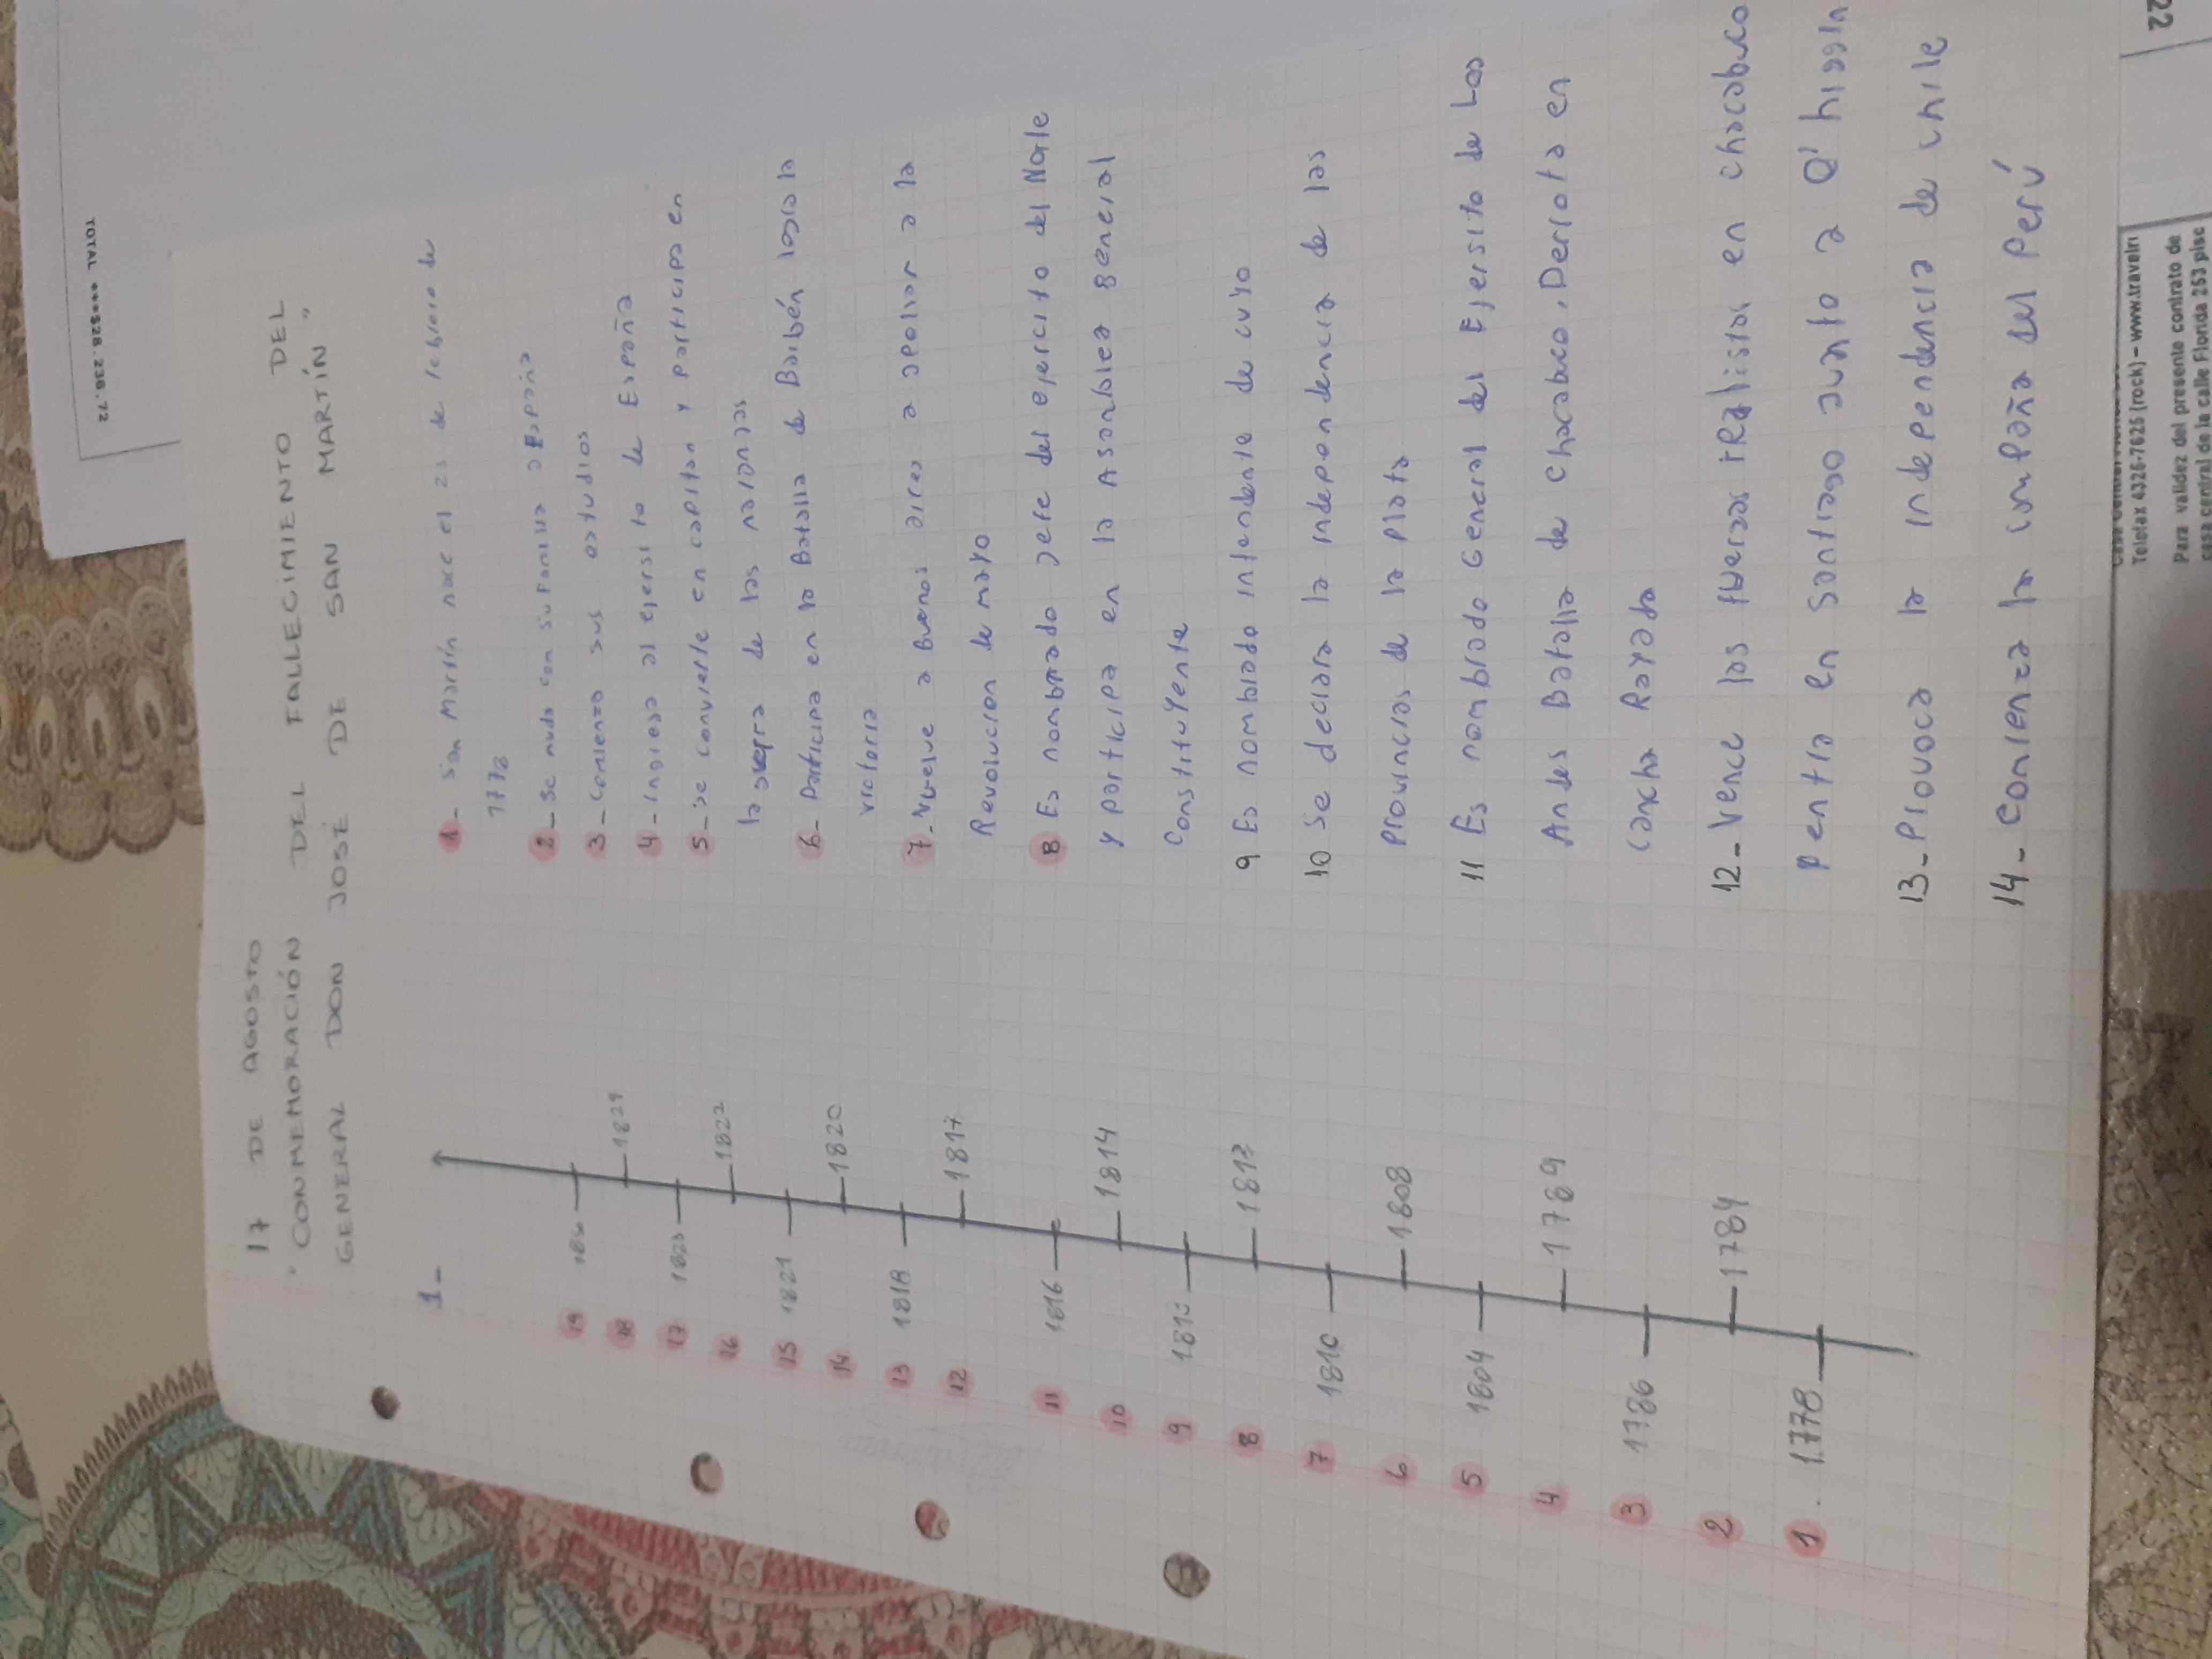 17 DE AGOSTO
"CONMEMORACIÓN DEL FALLECIMIENTO DEL
GENERAL DON JOSÉ DE SAN MARTÍN"
1-
19
18 1824
17 1823
16 1822
15 1821
14 1820
13 1818
12 1817
11 1816
10 1814
9 1813
8 1812
7 1810
6 1808
5 1804
4 1789
3 1786
2 1784
1. 1778
1- San Martín nace el 25 de febrero de
1778
2- Se muda con su familia a España
3- Comienza sus estudios
4- Ingresa al ejersito de España
5- Se convierte en capitan y participa en
la guerra de las naranjas
6- Participa en la Batalla de Bailén logra la
victoria
7- Vuelve a Buenos aires a apollar a la
Revolucion de mayo
8 Es nombrado Jefe del ejercito del Norte
y participa en la Asamblea general
Constituyente
9 Es nombrado intendente de cuyo
10 Se declara la independencia de las
Provincias de la plata
11 Es nombrado General del Ejersito de Los
Andes Batalla de Chacabuco, Derrota en
Cancha Rayada
12- Vence las fuerzas realistas en chacabuco
y entra en Santiago junto a O'higgin
13- Provoca la independencia de chile
14- Comienza la campaña del Perú
TOTAL ****$28.236.72
Telefax 4326-7626 (rock) – www.traveln
Para validez del presente contrato de
casa central de la calle Florida 253 piso
22